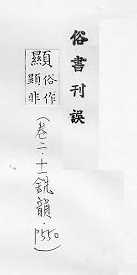 俗書刊誤
顯俗作
顕非
(卷二十一銑韻·P550)